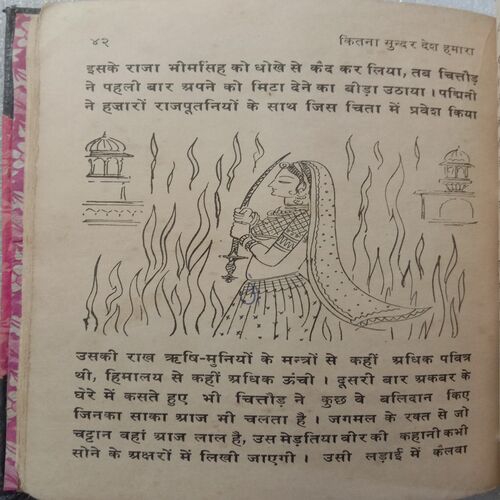 ४२ कितना सुन्दर देश हमारा
इसके राजा भीमसिंह को धोखे से कैद कर लिया, तब चित्तौड़
ने पहली बार अपने को मिटा देने का बीड़ा उठाया। पद्मिनी
ने हजारों राजपूतनियों के साथ जिस चिता में प्रवेश किया
उसकी राख ऋषि-मुनियों के मन्त्रों से कहीं अधिक पवित्र
थी, हिमालय से कहीं अधिक ऊंची। दूसरी बार अकबर के
घेरे में कसते हुए भी चित्तौड़ ने कुछ वे बलिदान किए
जिनका साका आज भी चलता है। जगमल के रक्त से जो
चट्टान वहां आज लाल है, उस मेड़तिया वीर की कहानी कभी
सोने के अक्षरों में लिखी जाएगी। उसी लड़ाई में कैलवा